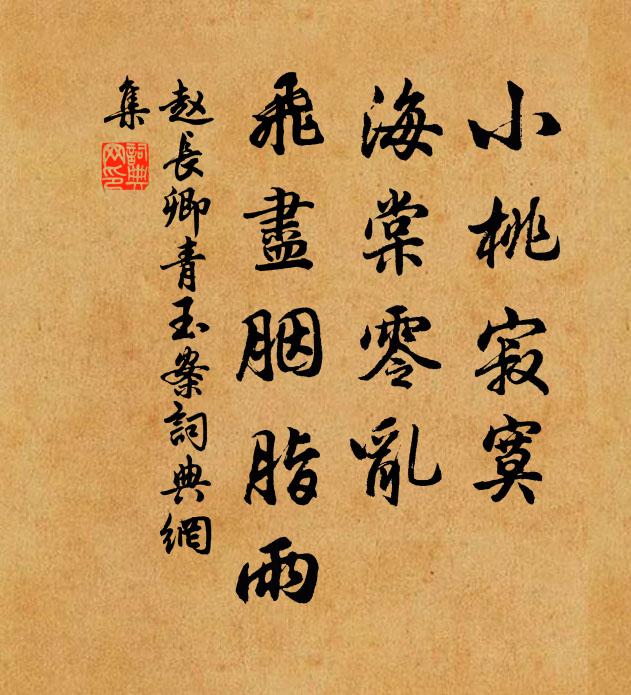 小桃寂寞
海棠零亂
飛盡胭脂雨
赵長卿青玉案詞典網
集
詞典
网印